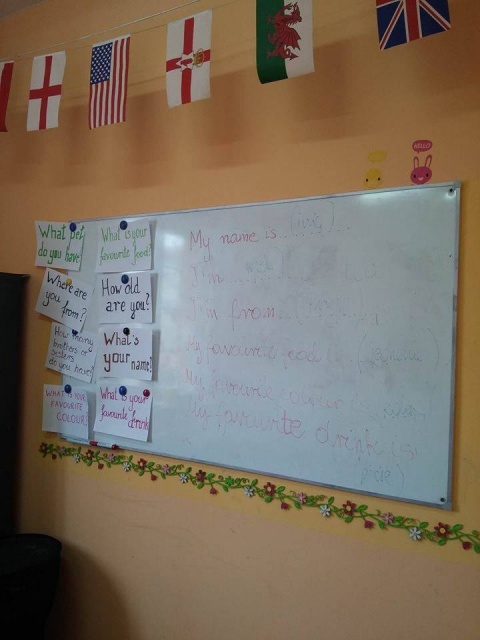 HELLO
What pet
do you have?
What is your
favourite food?
Where are
you from?
How old
are you?
How many
brothers or
sisters
do you have?
What's
your name?
WHAT IS YOUR
FAVOURITE
COLOUR?
What is your
favourite drink
My name is
I'm
I'm from
My favourite food is
My favourite colour
My favourite drink is